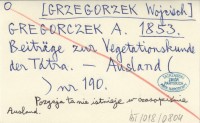 [GRZEGORZEK Wojciech]
GREGORCZEK A. 1853.
Beiträge zur Vegetationskunde
der Tatra. — Ausland (
) nr 190.
Pozycja ta nie istnieje w czasopiśmie
Ausland.